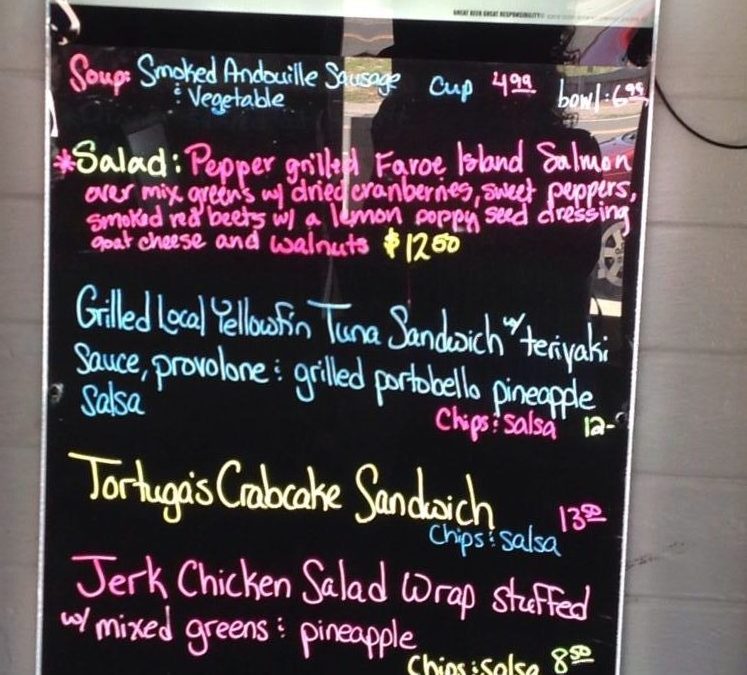 GREAT BEER GREAT RESPONSIBILITY
Soup: Smoked Andouille Sausage Cup 4.99 bowl: 6.99
& Vegetable
*Salad: Pepper grilled Faroe Island Salmon
over mix greens w/ dried cranberries, sweet peppers,
smoked red beets w/ a lemon poppy seed dressing
goat cheese and walnuts $12.50
Grilled Local Yellowfin Tuna Sandwich w/ teriyaki
Sauce, provolone & grilled portobello pineapple
Salsa
Chips & salsa 12-
Tortuga's Crabcake Sandwich
Chips & salsa 13.50
Jerk Chicken Salad Wrap stuffed
w/ mixed greens & pineapple
Chips & salsa 8.50